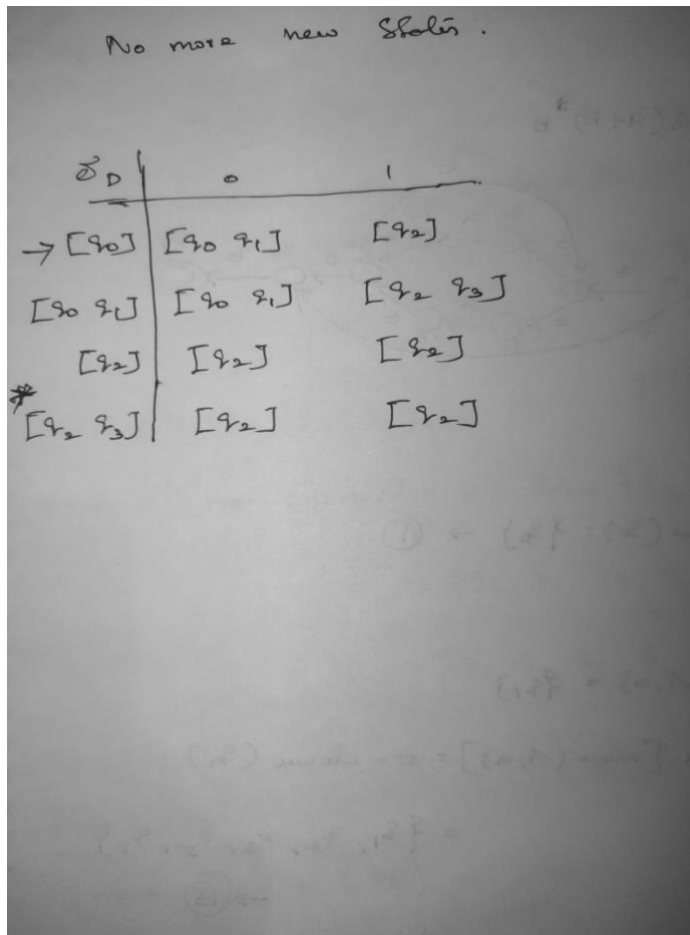 No more new States.
δD 0 1
→ [q0] [q0 q1] [q2]
[q0 q1] [q0 q1] [q2 q3]
[q2] [q2] [q2]
* [q2 q3] [q2] [q2]